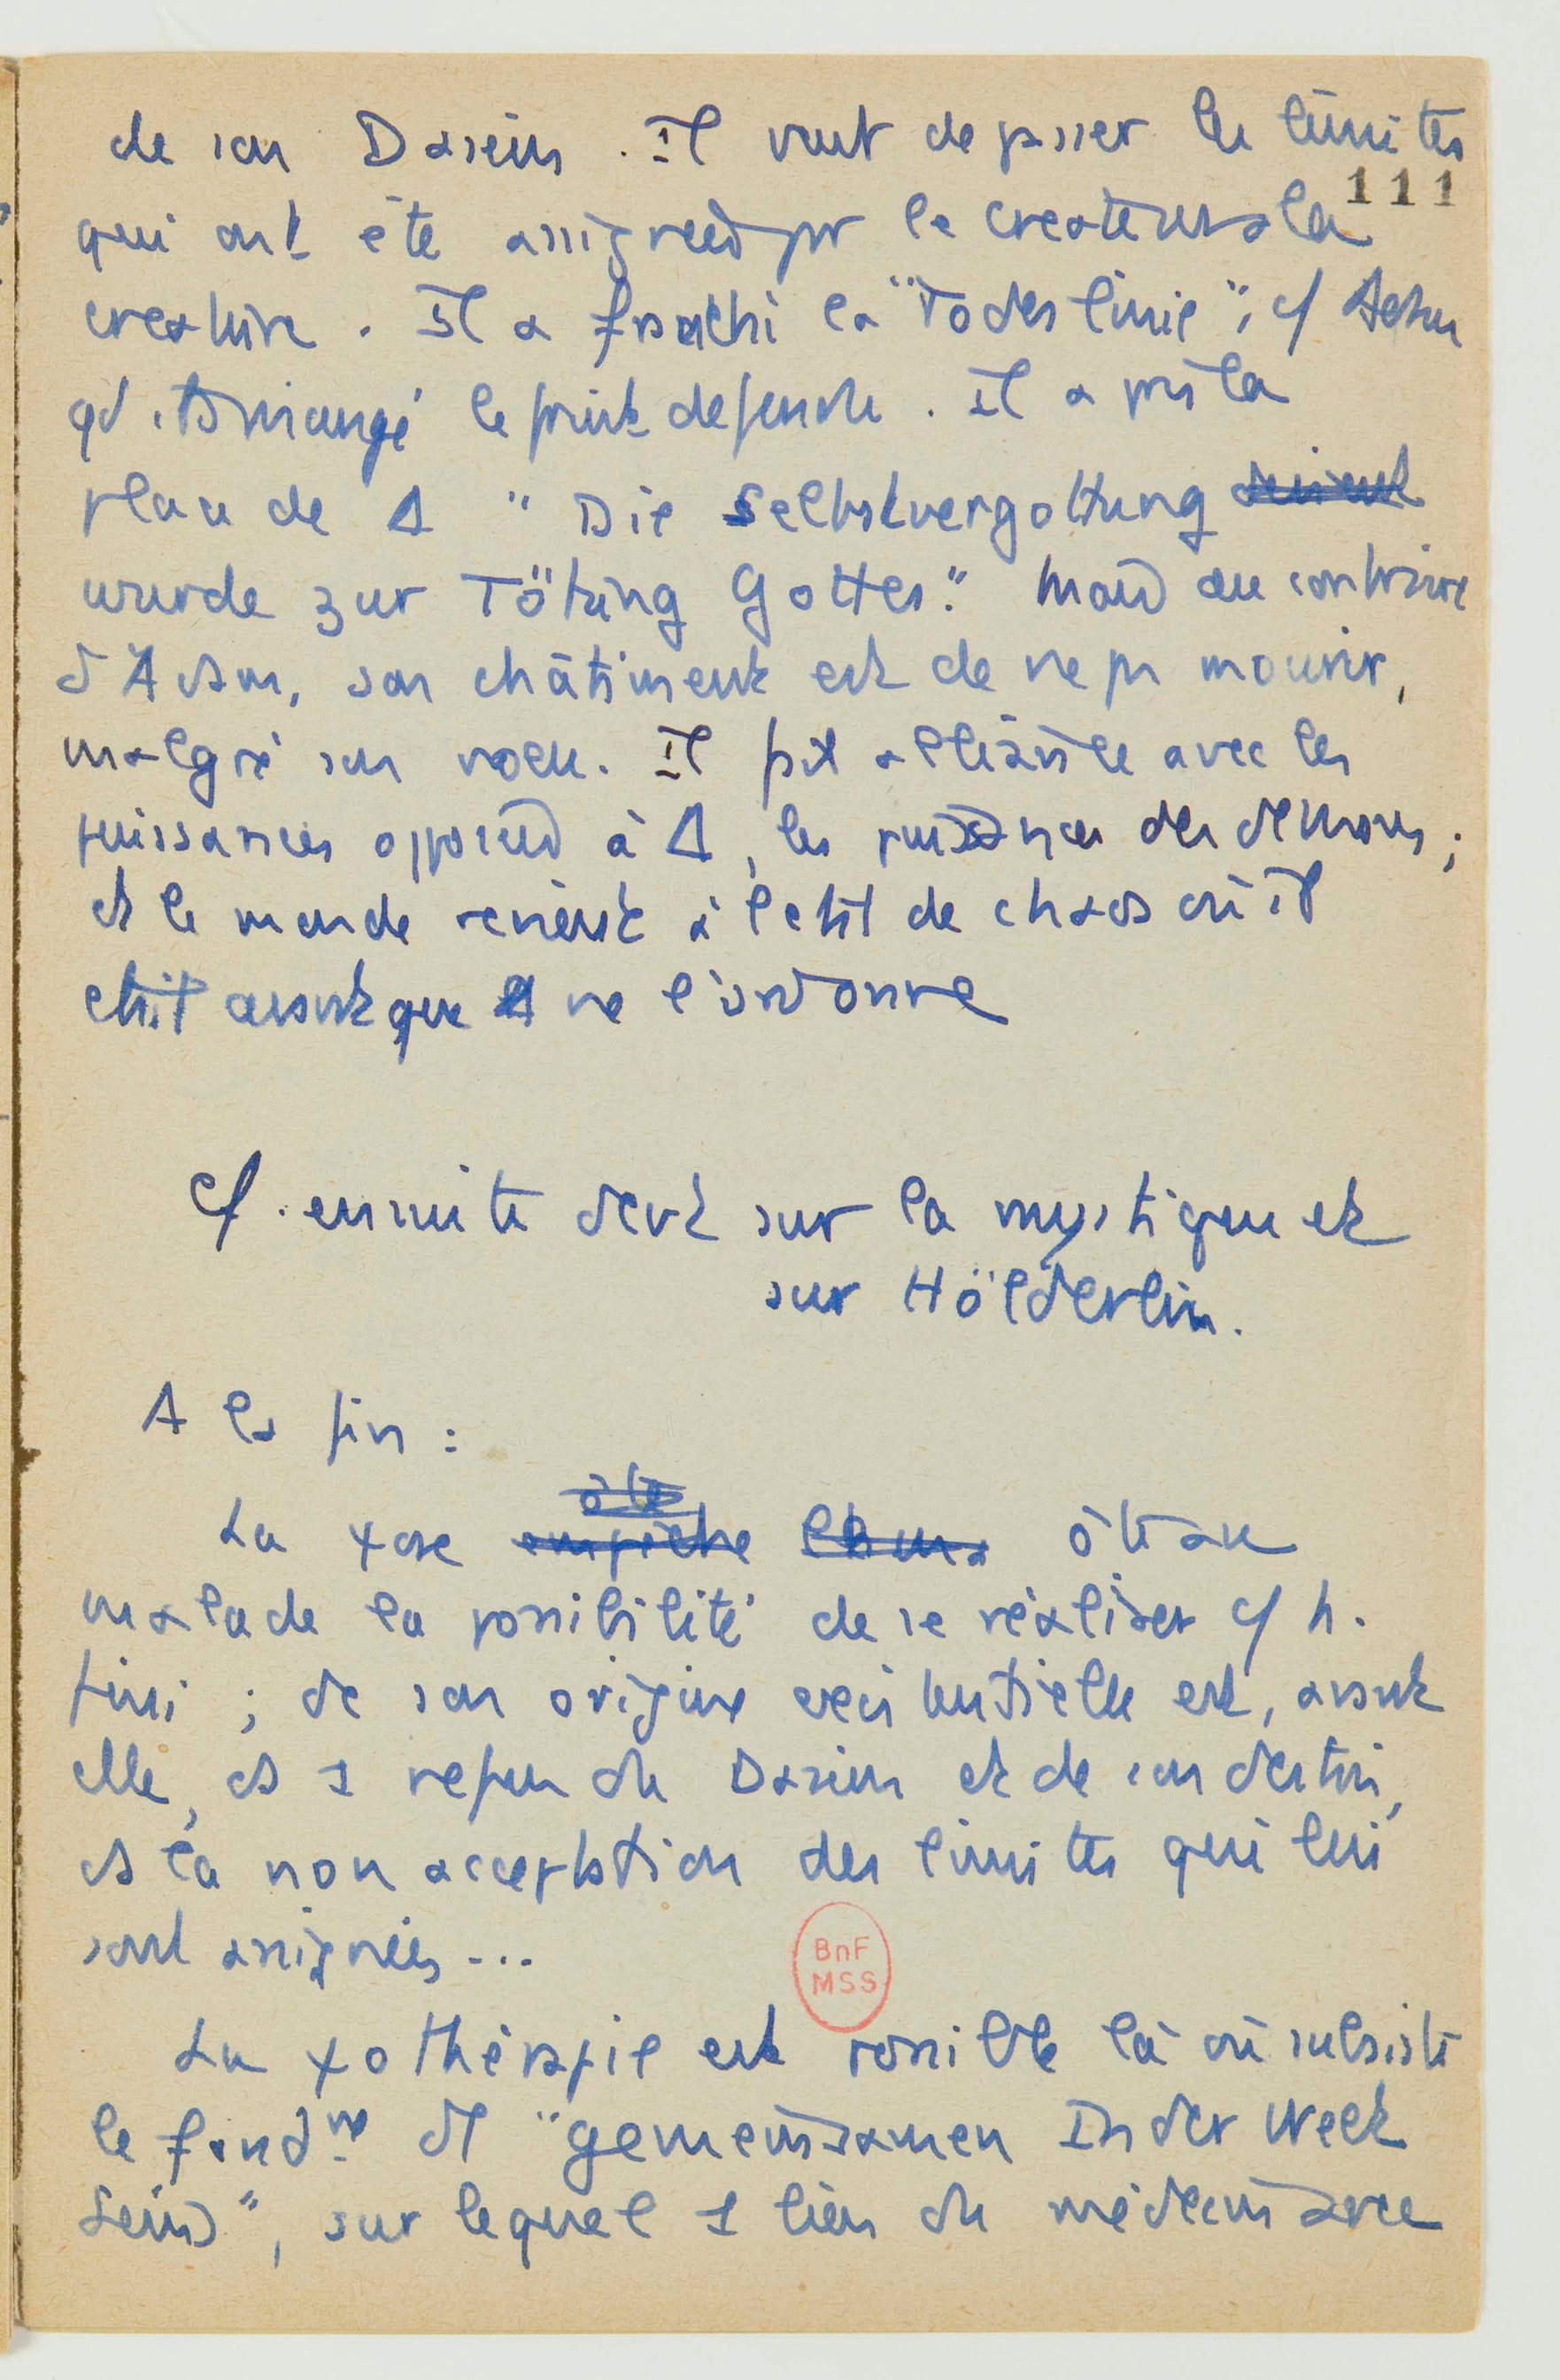 de son Dasein. Il veut depasser les limites
111
qui ont été assignées par le createur a la
creature. Il a franchi la "Todeslinie"; cf Adam
qd il a mangé le fruit defendu. Il a pris la
place de Δ " Die Selbstvergottung
wurde zur Tötung Gottes." Mais au contraire
d'Adam, son châtiment est de ne pas mourir,
malgré son voeu. Il fait alliance avec les
puissances opposées à Δ, les puissances des demons;
et le monde revient à l'etat de chaos où il
etait avant que Δ ne l'ordonne
Cf. ensuite devt sur la mystique et
sur Hölderlin.
A la fin :
La ψose ôte au
malade la possibilité de se réaliser cf h.
fini ; de son origine existentielle est, avant
elle, et 1 refus du Dasein et de son destin,
et la non acceptation des limites qui lui
sont assignées ...
La ψothérapie est possible là où subsiste
le fond de "gemeinsamen In der Welt
Seins", sur lequel 1 lien du médecin avec
BnF
MSS